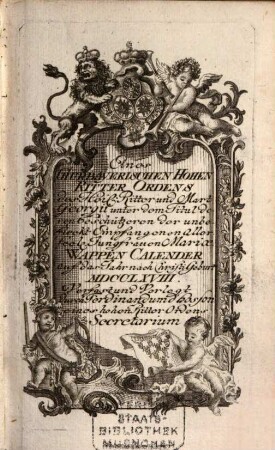 Eines
CHURBAYERISCHEN HOHEN
RITTER ORDENS
des Heil. Ritter und Mart.
Georgii unter dem Titul de
beschützeren der unbe
Empfangenen Aller
Jungfrauen Mariæ
WAPPEN CALENDER
auf das Jahr nach Christi Geburt
MDCCLXVIII.
Verfast und Verlegt
Ferdinandum
eines hohen Ritter Ordens
Secretarium
STAATS-
BIBLIOTHEK
MUENCHEN